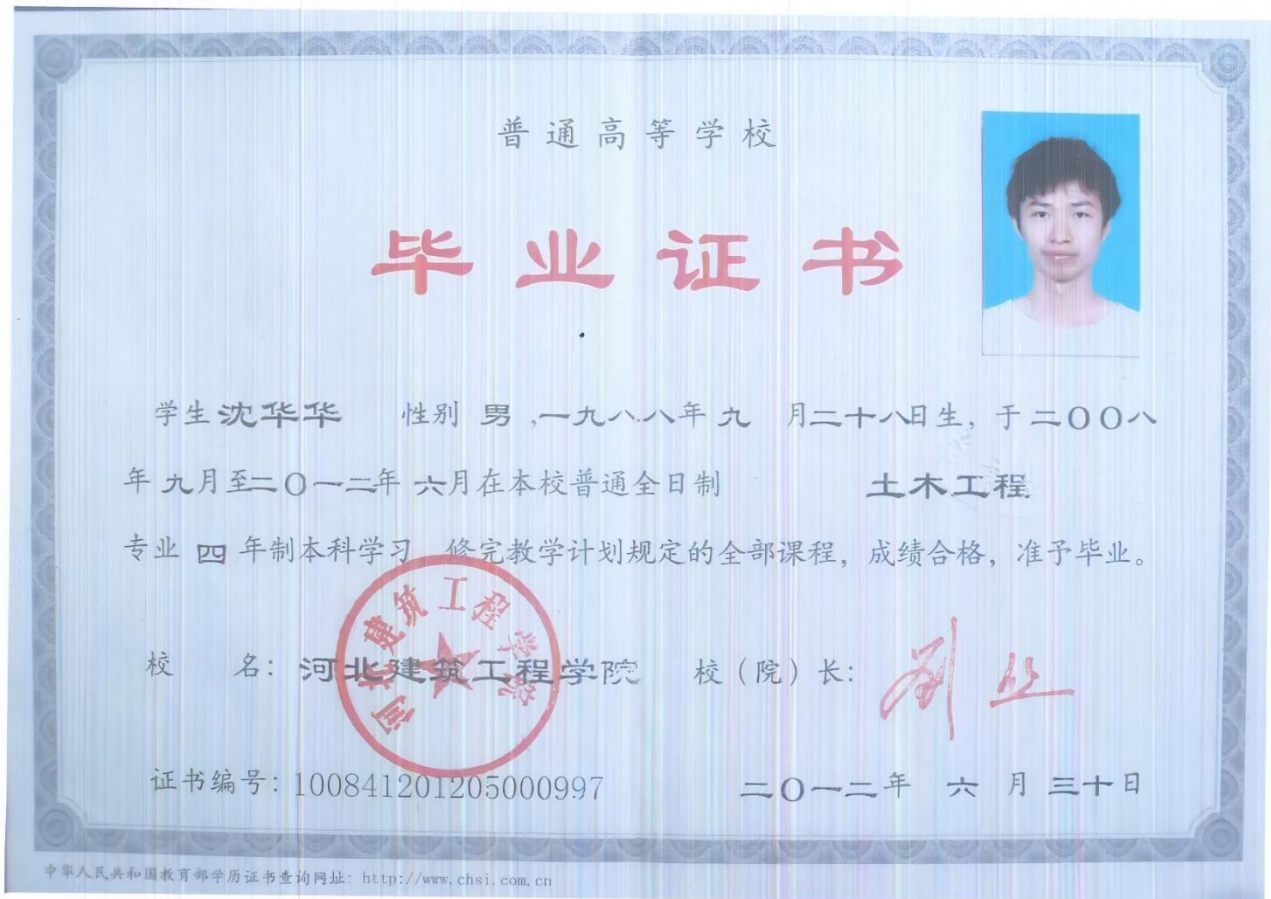 普通高等学校
毕业证书
学生 沈华华 性别 男 ,一九八八年 九 月二十八日生, 于 二〇〇八
年 九月至二〇一二年 六月在本校普通全日制 土木工程
专业 四 年制本科学习 修完教学计划规定的全部课程, 成绩合格, 准予毕业。
河北建筑工程学院
校 名: 河北建筑工程学院 校(院)长:
证书编号: 100841201205000997 二〇一二年 六 月 三十日
中华人民共和国教育部学历证书查询网址: http://www.chsi.com.cn